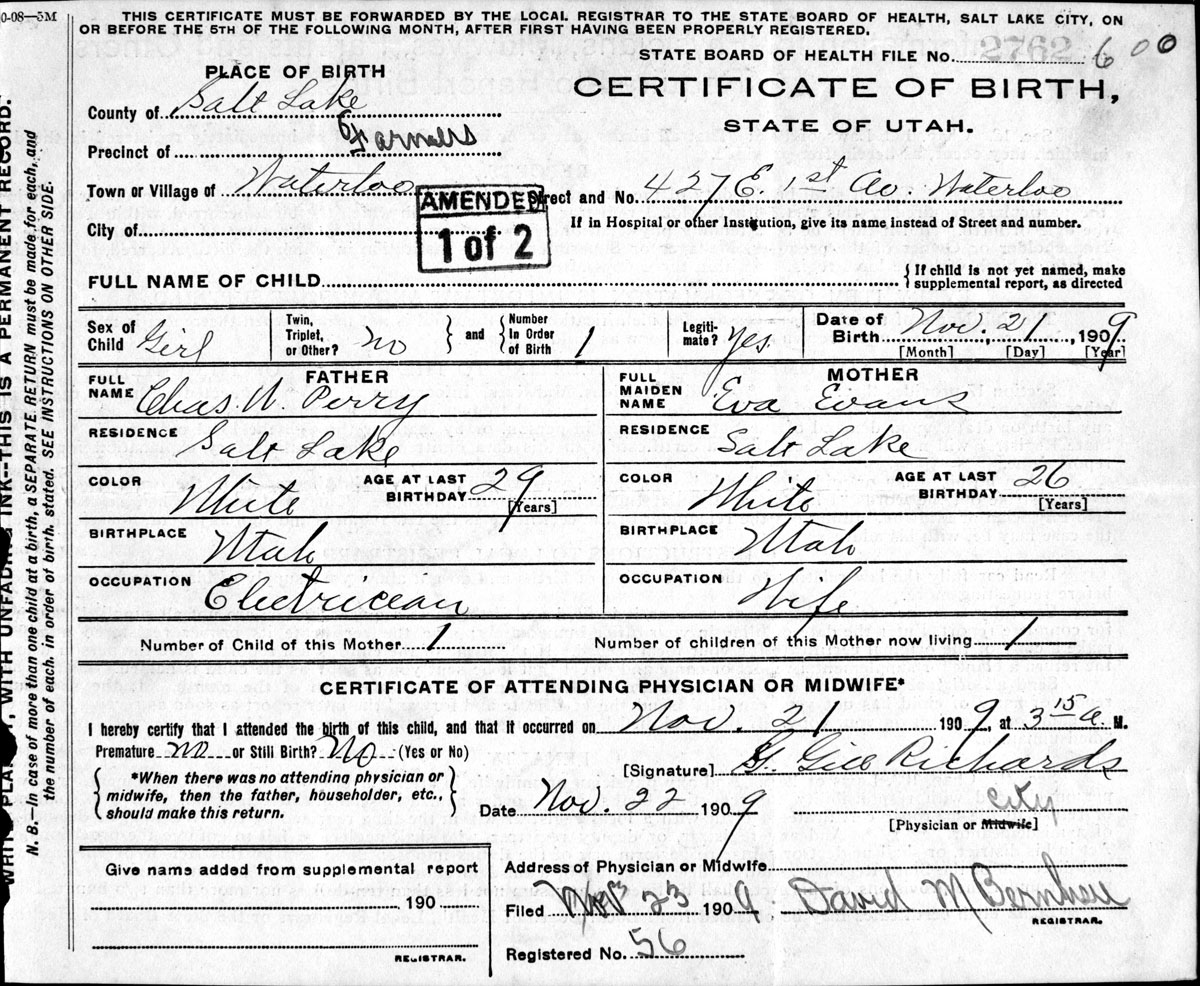 0-08—5M
THIS CERTIFICATE MUST BE FORWARDED BY THE LOCAL REGISTRAR TO THE STATE BOARD OF HEALTH, SALT LAKE CITY, ON
OR BEFORE THE 5TH OF THE FOLLOWING MONTH, AFTER FIRST HAVING BEEN PROPERLY REGISTERED.
STATE BOARD OF HEALTH FILE No. 2762 600
PLACE OF BIRTH
CERTIFICATE OF BIRTH,
STATE OF UTAH.
County of Salt Lake
Precinct of Farmers
Town or Village of Waterloo
Street and No. 427 E 1st Av. Waterloo
AMENDED
1 of 2
If in Hospital or other Instiution, give its name instead of Street and number.
City of
FULL NAME OF CHILD
If child is not yet named, make
supplemental report, as directed
Sex of Child Girl
Twin, Triplet, or Other? no
and
Number In Order of Birth 1
Legiti-mate? Yes.
Date of Birth Nov. 21, 1909
[Month] [Day] [Year]
FATHER
FULL NAME Chas. W. Perry
RESIDENCE Salt Lake
COLOR White
AGE AT LAST BIRTHDAY 29 [Years]
BIRTHPLACE Utah
OCCUPATION Electricean
MOTHER
FULL MAIDEN NAME Eva Evans
RESIDENCE Salt Lake
COLOR White
AGE AT LAST BIRTHDAY 26 [Years]
BIRTHPLACE Utah
OCCUPATION Wife
Number of Child of this Mother 1
Number of children of this Mother now living 1
CERTIFICATE OF ATTENDING PHYSICIAN OR MIDWIFE*
I hereby certify that I attended the birth of this child, and that it occurred on Nov. 21 1909, at 3 15 a. M.
Premature no or Still Birth? No (Yes or No)
[Signature] G. Gill Richards
*When there was no attending physician or
midwife, then the father, householder, etc.,
should make this return.
Date Nov. 22 1909
City
[Physician or Midwife]
Give name added from supplemental report
190
REGISTRAR.
Address of Physician or Midwife
Filed 23 1909 David M
REGISTRAR.
Registered No. 56
WITH UNFADING INK--THIS IS A PERMANENT RECORD.
N. B.—In case of more than one child at a birth, a SEPARATE RETURN must be made for each, and
the number of each, in order of birth, stated. SEE INSTRUCTIONS ON OTHER SIDE.